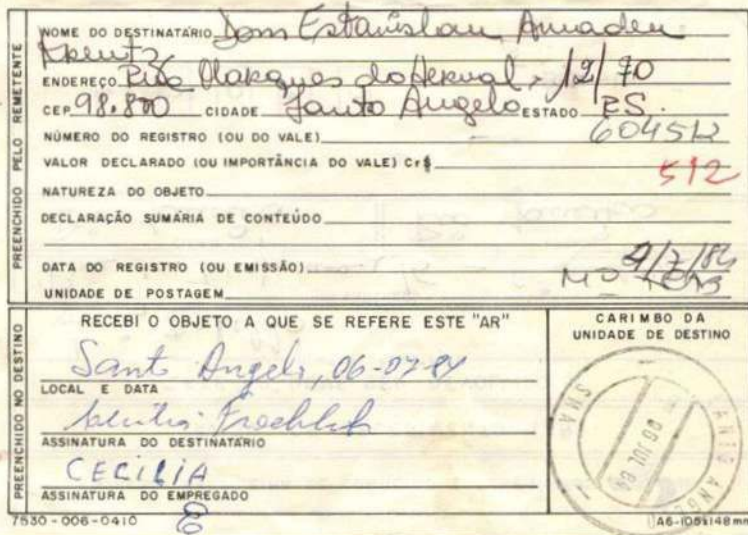 PREENCHIDO PELO REMETENTE
NOME DO DESTINATÁRIO Dom Estanislau Amadeu
Kreutz
ENDEREÇO Rua Marques do Herval, 12/70
CEP 98.800 CIDADE Santo Angelo ESTADO ES.
NÚMERO DO REGISTRO (OU DO VALE) 604512
VALOR DECLARADO (OU IMPORTÂNCIA DO VALE) Cr$ 512
NATUREZA DO OBJETO
DECLARAÇÃO SUMÁRIA DE CONTEÚDO
DATA DO REGISTRO (OU EMISSÃO) 4/7/84
UNIDADE DE POSTAGEM
PREENCHIDO NO DESTINO
RECEBI O OBJETO A QUE SE REFERE ESTE "AR"
Santo Angelo, 06-07-84
LOCAL E DATA
Froehlich
ASSINATURA DO DESTINATÁRIO
CECILIA
ASSINATURA DO EMPREGADO
CARIMBO DA
UNIDADE DE DESTINO
SANTO ANGELO
06 JUL 84
SMA
7530-006-0410
A6-105x148mm